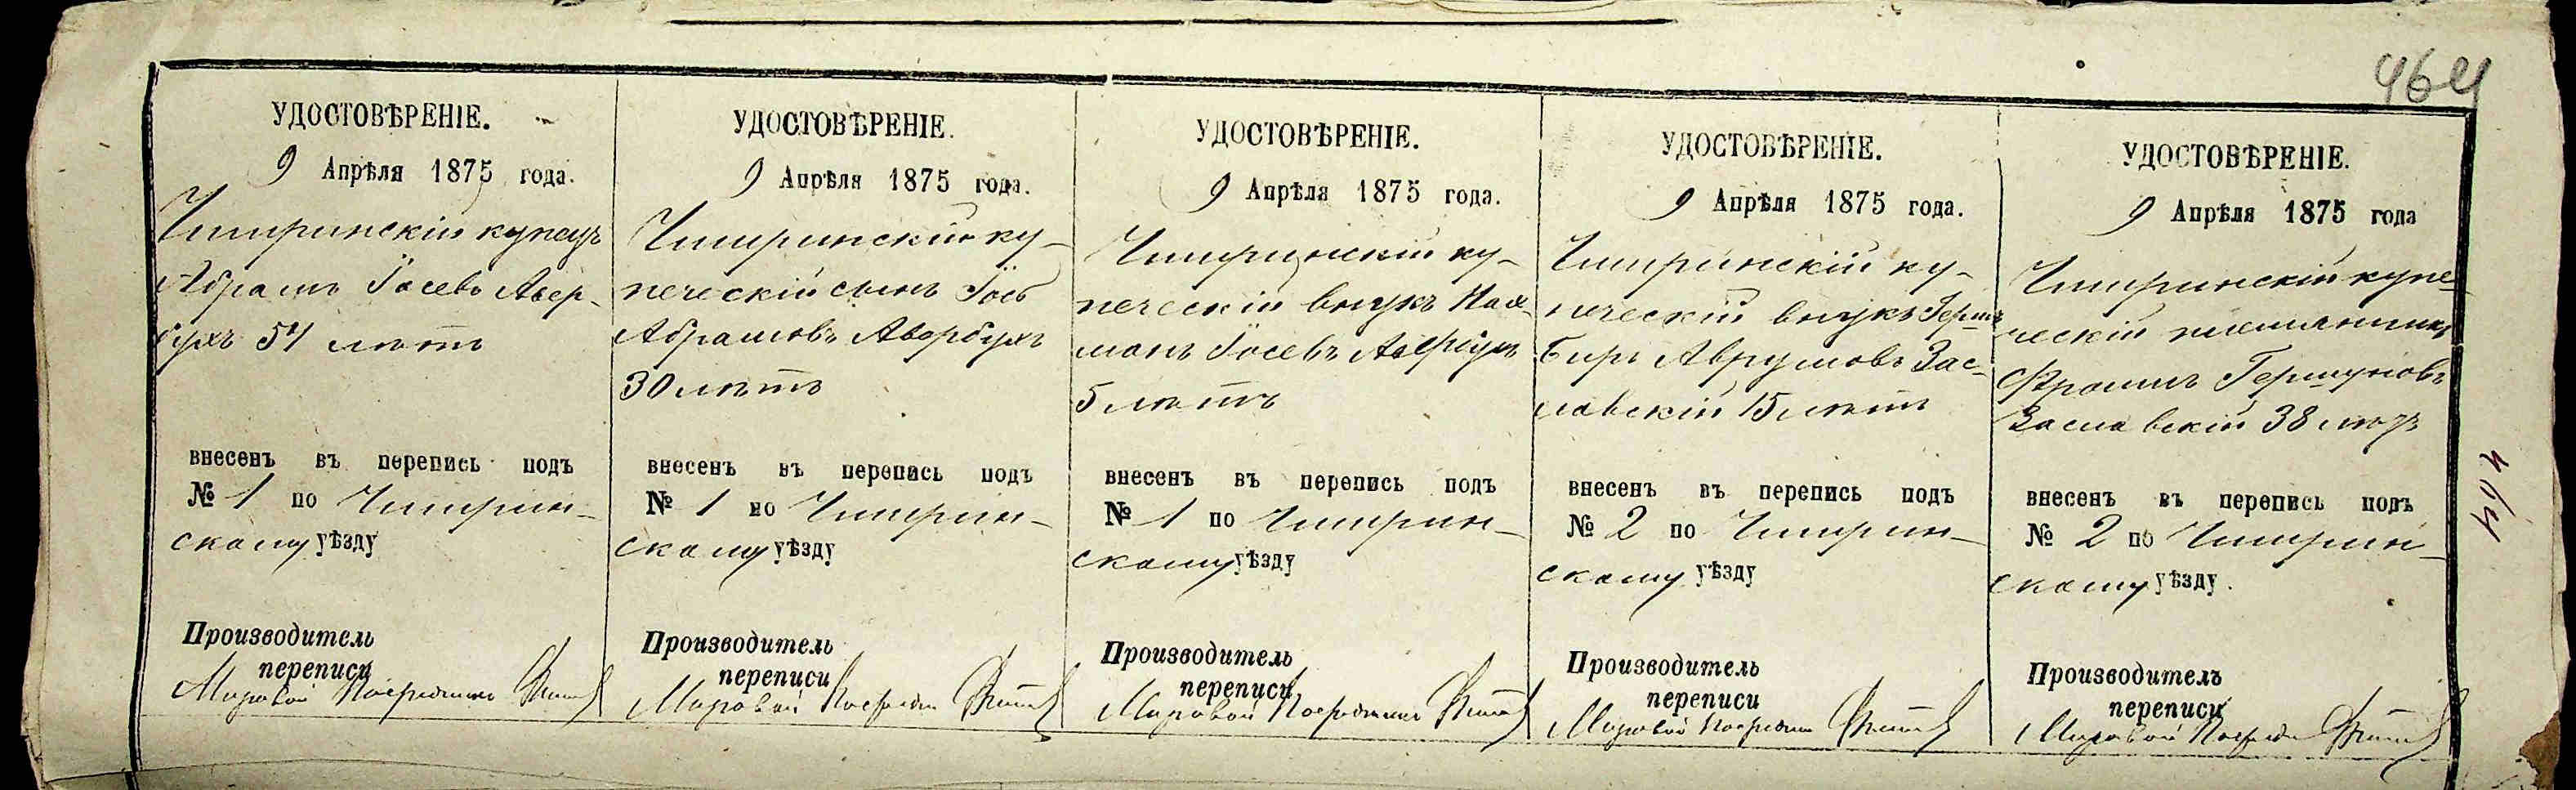 464
УДОСТОВѢРЕНІЕ.
9 Апрѣля 1875 года.
Чигиринскій купецъ
Абрамъ Іосевъ Авер-
бухъ 54 лѣтъ
внесенъ въ перепись подъ
№ 1 по Чигирин-
скому уѣзду
Производитель
переписи
Мировой Посредникъ
УДОСТОВѢРЕНІЕ.
9 Апрѣля 1875 года.
Чигиринскій ку-
печескій сынъ Іосъ
Абрамовъ Авербухъ
30 лѣтъ
внесенъ въ перепись подъ
№ 1 по Чигирин-
скому уѣзду
Производитель
переписи
Мировой Посредн
УДОСТОВѢРЕНІЕ.
9 Апрѣля 1875 года.
Чигиринскій ку-
печескій внукъ Нах-
манъ Іосевъ Авербухъ
5 лѣтъ
внесенъ въ перепись подъ
№ 1 по Чигирин-
скому уѣзду
Производитель
переписи
Мировой Посредникъ
УДОСТОВѢРЕНІЕ.
9 Апрѣля 1875 года.
Чигиринскій ку-
печескій внукъ Гершъ
Беръ Аврумовъ Зас-
лавскій 15 лѣтъ
внесенъ въ перепись подъ
№ 2 по Чигирин-
скому уѣзду
Производитель
переписи
Мировой Посредн
УДОСТОВѢРЕНІЕ.
9 Апрѣля 1875 года
Чигиринскій купе-
ческій племянникъ
Фроимъ Гершуновъ
Заславскій 38 лѣтъ
внесенъ въ перепись подъ
№ 2 по Чигирин-
скому уѣзду.
Производитель
переписи
Мировой Посредн
464